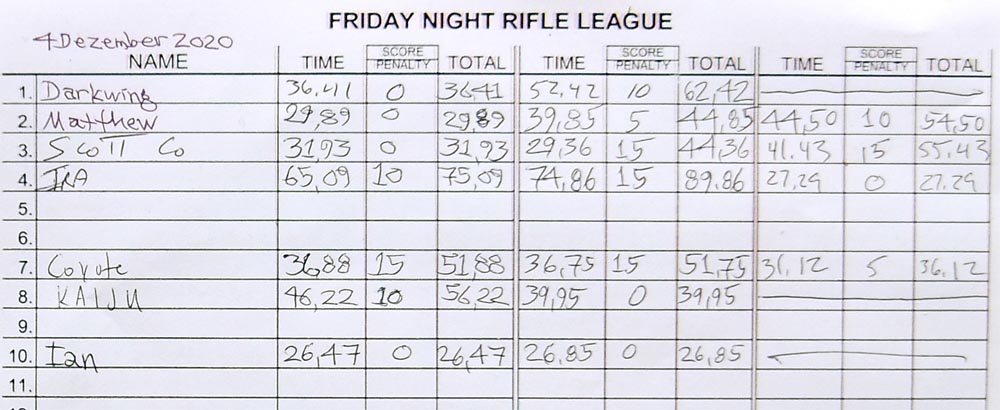 FRIDAY NIGHT RIFLE LEAGUE
4 Dezember 2020
NAME TIME SCORE PENALTY TOTAL TIME SCORE PENALTY TOTAL TIME SCORE PENALTY TOTAL
1. Darkwing 36.41 0 36.41 52,42 10 62,42
2. Matthew 29,89 0 29,89 39,85 5 44,85 44,50 10 54,50
3. SCOTT Co 31,93 0 31,93 29,36 15 44,36 41.43 15 55.43
4. IRA 65,09 10 75,09 74,86 15 89,86 27,29 0 27.29
5.
6.
7. Coyote 36,88 15 51,88 36,75 15 51,75 31,12 5 36,12
8. KAIJU 46,22 10 56,22 39,95 0 39,95
9.
10. Ian 26,47 0 26,47 26,85 0 26,85
11.